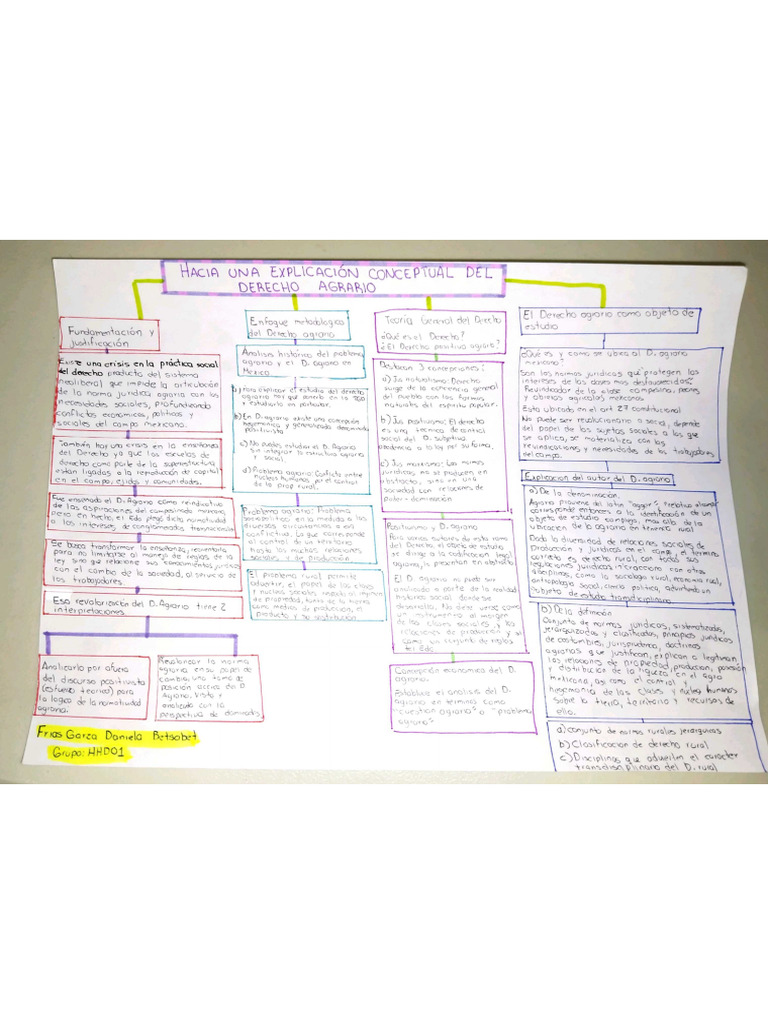 HACIA UNA EXPLICACIÓN CONCEPTUAL DEL
DERECHO AGRARIO
Fundamentación y
justificación
Existe una crisis en la práctica social
del derecho producto del sistema
neoliberal que impide la articulación
de la norma jurídica agraria con las
necesidades sociales, profundizando
conflictos económicos, políticos y
sociales del campo mexicano.
También hay una crisis en la enseñanza
del Derecho ya que las escuelas de
derecho como parte de la superestructura
están ligadas a la reproducción de capital
en el campo, ejidos y comunidades.
Fue enseñado el D. Agrario como reindicativo
de las aspiraciones del campesinado mexicano,
pero en hecho, el Edo plegó dicha normatividad
a los intereses de conglomerados transnacionales
Se busca transformar la enseñanza, reorientarla
para no limitarse al manejo de reglas de la
ley sino que relacione sus conocimientos jurídicos
con el cambio de la sociedad, al servicio de
los trabajadores.
Esa revalorización del D. Agrario tiene 2
interpretaciones
Analizarlo por afuera
del discurso positivista
(esfuerzo teórico) para
la lógica de la normatividad
agraria.
Revalorizar la norma
agraria en su papel de
cambio, una toma de
posición acerca de D.
Agrario. Visto y
analizado con la
perspectiva de dominados
Frias Garza Daniela Betsabet
Grupo: HHD01
Enfoque metodologico
del Derecho agrario
Analisis histórico del problema
agrario y el D. agrario en
México
a) Para explicar el estudio del derecho
agrario hay que ponerlo en la
y estudiarlo en particular.
b) En D. agrario existe una concepción
hegemónica y generalizada denominada
positivista
c) No puedes estudiar el D. Agrario
sin integrar la estructura agraria
y social.
d) Problema agrario: Conflicto entre
nucleos humanos por el control
de la prop rural.
Problema agrario: Problema
sociopolítico en la medida a las
diversas circunstancias o era
conflictiva. Lo que corresponde
al control de un territorio
hasta las muchas relaciones
sociales y de producción
El problema rural permite
advertir, el papel de las clases
y nucleos sociales respecto al regimen
de propiedad, tanto de la tierra
como medios de producción, el
producto y su sustitución
Teoría General del Derecho
¿Qué es el Derecho?
¿El Derecho positivo agrario?
Destacan 3 concepciones:
a) Jus naturalismo: Derecho
surge de la conciencia general
del pueblo con las formas
naturales del espíritu popular.
b) Jus Positivismo: El derecho
es una técnica de control
social del D. subjetivo,
obediencia a la ley por su forma.
c) Jus marxismo: Las normas
jurídicas no se producen en
abstracto, sino en una
sociedad con relaciones de
poder-dominación
Positivismo y D. agrario
Para varios autores de esta rama
del Derecho, el objeto de estudio
se dirige a la codificación legal
agraria, la presentan en abstracto.
El D. Agrario no puede ser
analizado a parte de la realidad
material social donde se
desarrolla. No debe verse como
un instrumento al margen
de las clases sociales y las
relaciones de producción y si
como un conjunto de reglas
del Edo.
Concepción económica del D.
agrario
Establece el analisis del D.
agrario en términos como
"cuestión agraria" o "problema
agrario"
El Derecho agrario como objeto de
estudio
¿Qué es y como se ubica al D. agrario
mexicano?
Son las normas jurídicas que protegen los
intereses de las clases mas desfavorecidas.
Reivindicador de la clase campesina, peones
y obreros agrícolas mexicanos
Esta ubicado en el art 27 constitucional
No puede ser revolucionario o social, depende
del papel de los sujetos sociales a los que
se aplica, se materializa con las
reivindicaciones y necesidades de los trabajadores
del campo.
Explicacion del autor del D. agrario
a) De la denominación.
Agrario proviene del latín "agger", relativo al
corresponde entonces a la identificación de un
objeto de estudio complejo, mas alla de la
ubicación de lo agrario en término rural
Dada la diversidad de relaciones sociales de
producción y jurídicas en el campo, el termino
correcto es derecho rural, con todas sus
regulaciones jurídicas interacciona con otras
disciplinas, como la sociología rural, economía rural,
antropología social, ciencia política, advirtiendo un
objeto de estudio transdisciplinario
b) De la difinición
Conjunto de normas jurídicas, sistematizadas,
jerarquizadas y clasificadas, principios jurídicos
de costumbres, jurisprudencia, doctrinas
agrarias que justifican, explican o legitiman
las relaciones de propiedad, producción, posesión
y distribución de la riqueza en el agro
mexicano, asi como el control y
hegemonía de las clases y nucleos humanos
sobre la tierra, territorio y recursos de
ello.
a) conjunto de normas rurales jerarquicas
b) Clasificacion de derecho rural
c) Disciplinas que advierten el carácter
transdisciplinario del D. rural